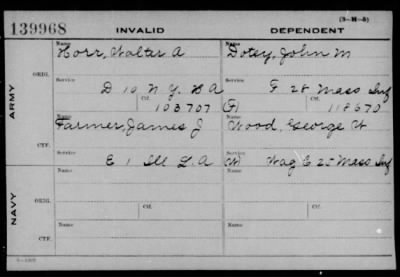 (3-M-5)
139968 INVALID DEPENDENT
Name Name
Horr, Walter A Dotey, John M
ARMY
ORIG.
Service Service
D 10 N.Y. H A F 28 Mass Inf
Ctf. Ctf.
103707 (F) 118670
Name Name
Farmer, James J Wood, George W
CTF.
Service Service
E 1 Ill L. A (W) Wag E 25 Mass Inf
NAVY
ORIG.
Name Name
Ctf. Ctf.
CTF.
Name Name